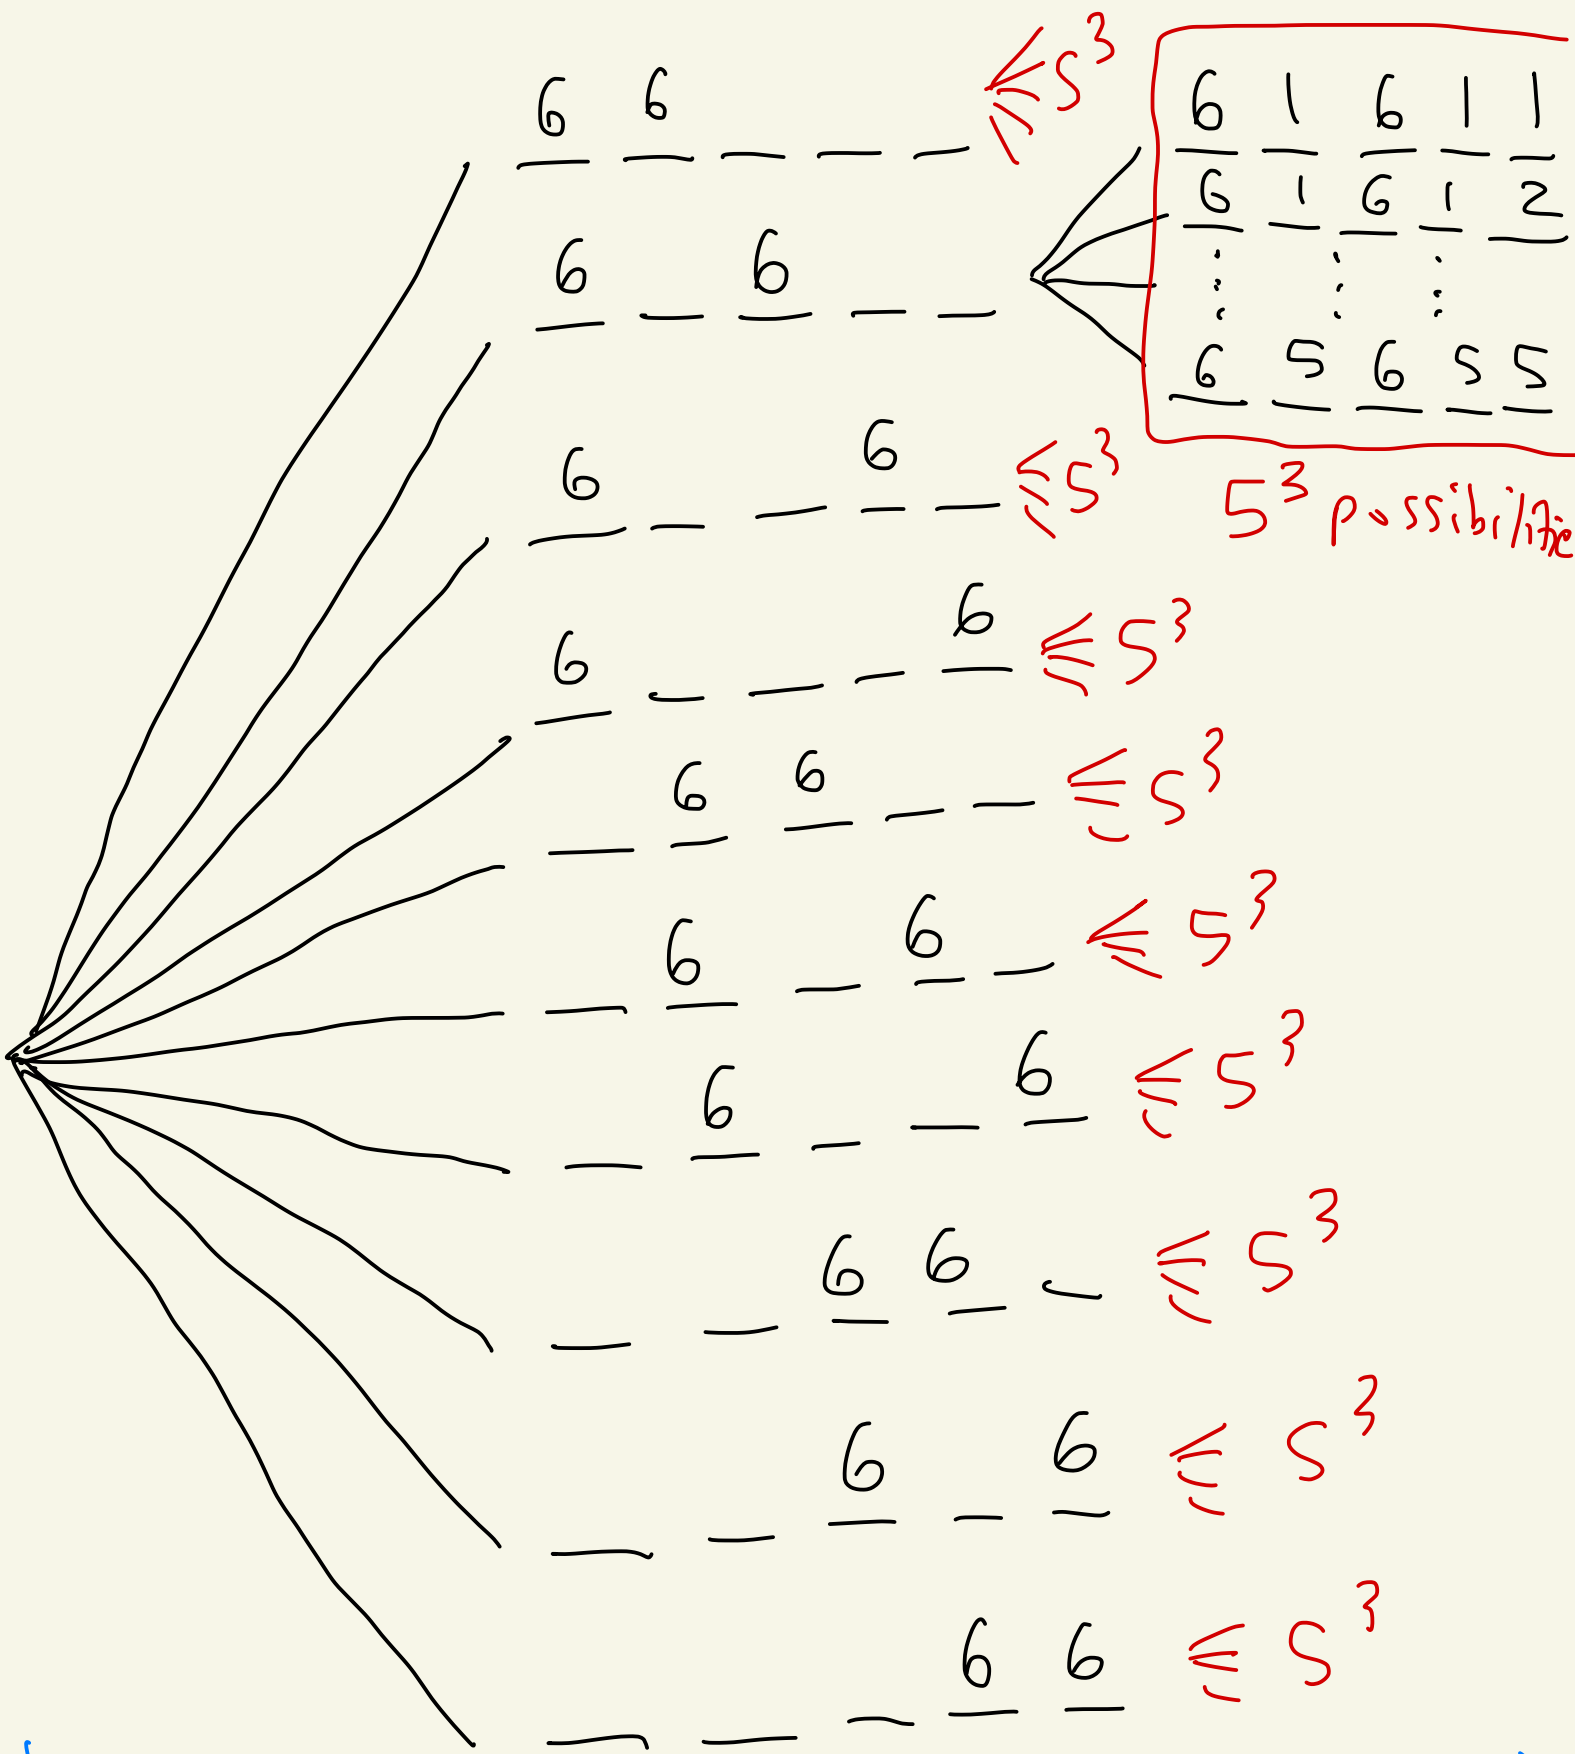 6 6 _ _ _ 5³
6 _ 6 _ _
6 1 6 1 1
6 1 6 1 2
⋮ ⋮ ⋮
6 5 6 5 5
5³ possibilitie
6 _ _ 6 _ 5³
6 _ _ _ 6 5³
_ 6 6 _ _ 5³
_ 6 _ 6 _ 5³
_ 6 _ _ 6 5³
_ _ 6 6 _ 5³
_ _ 6 _ 6 5³
_ _ _ 6 6 5³